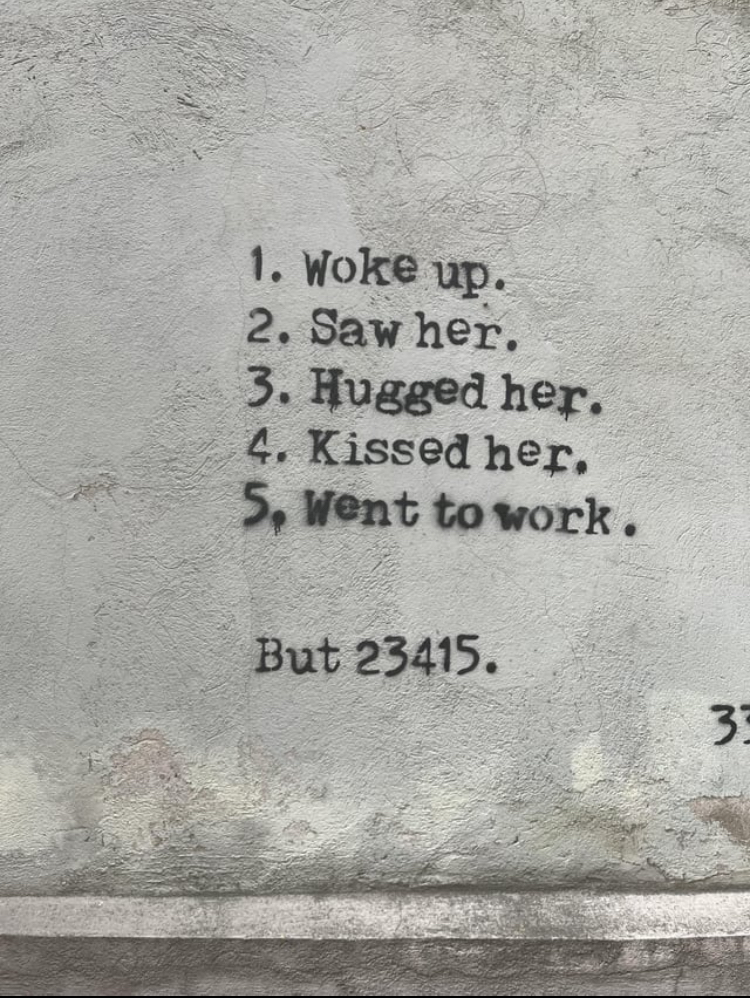 1. Woke up.
2. Saw her.
3. Hugged her.
4. Kissed her.
5. Went to work.
But 23415.
33